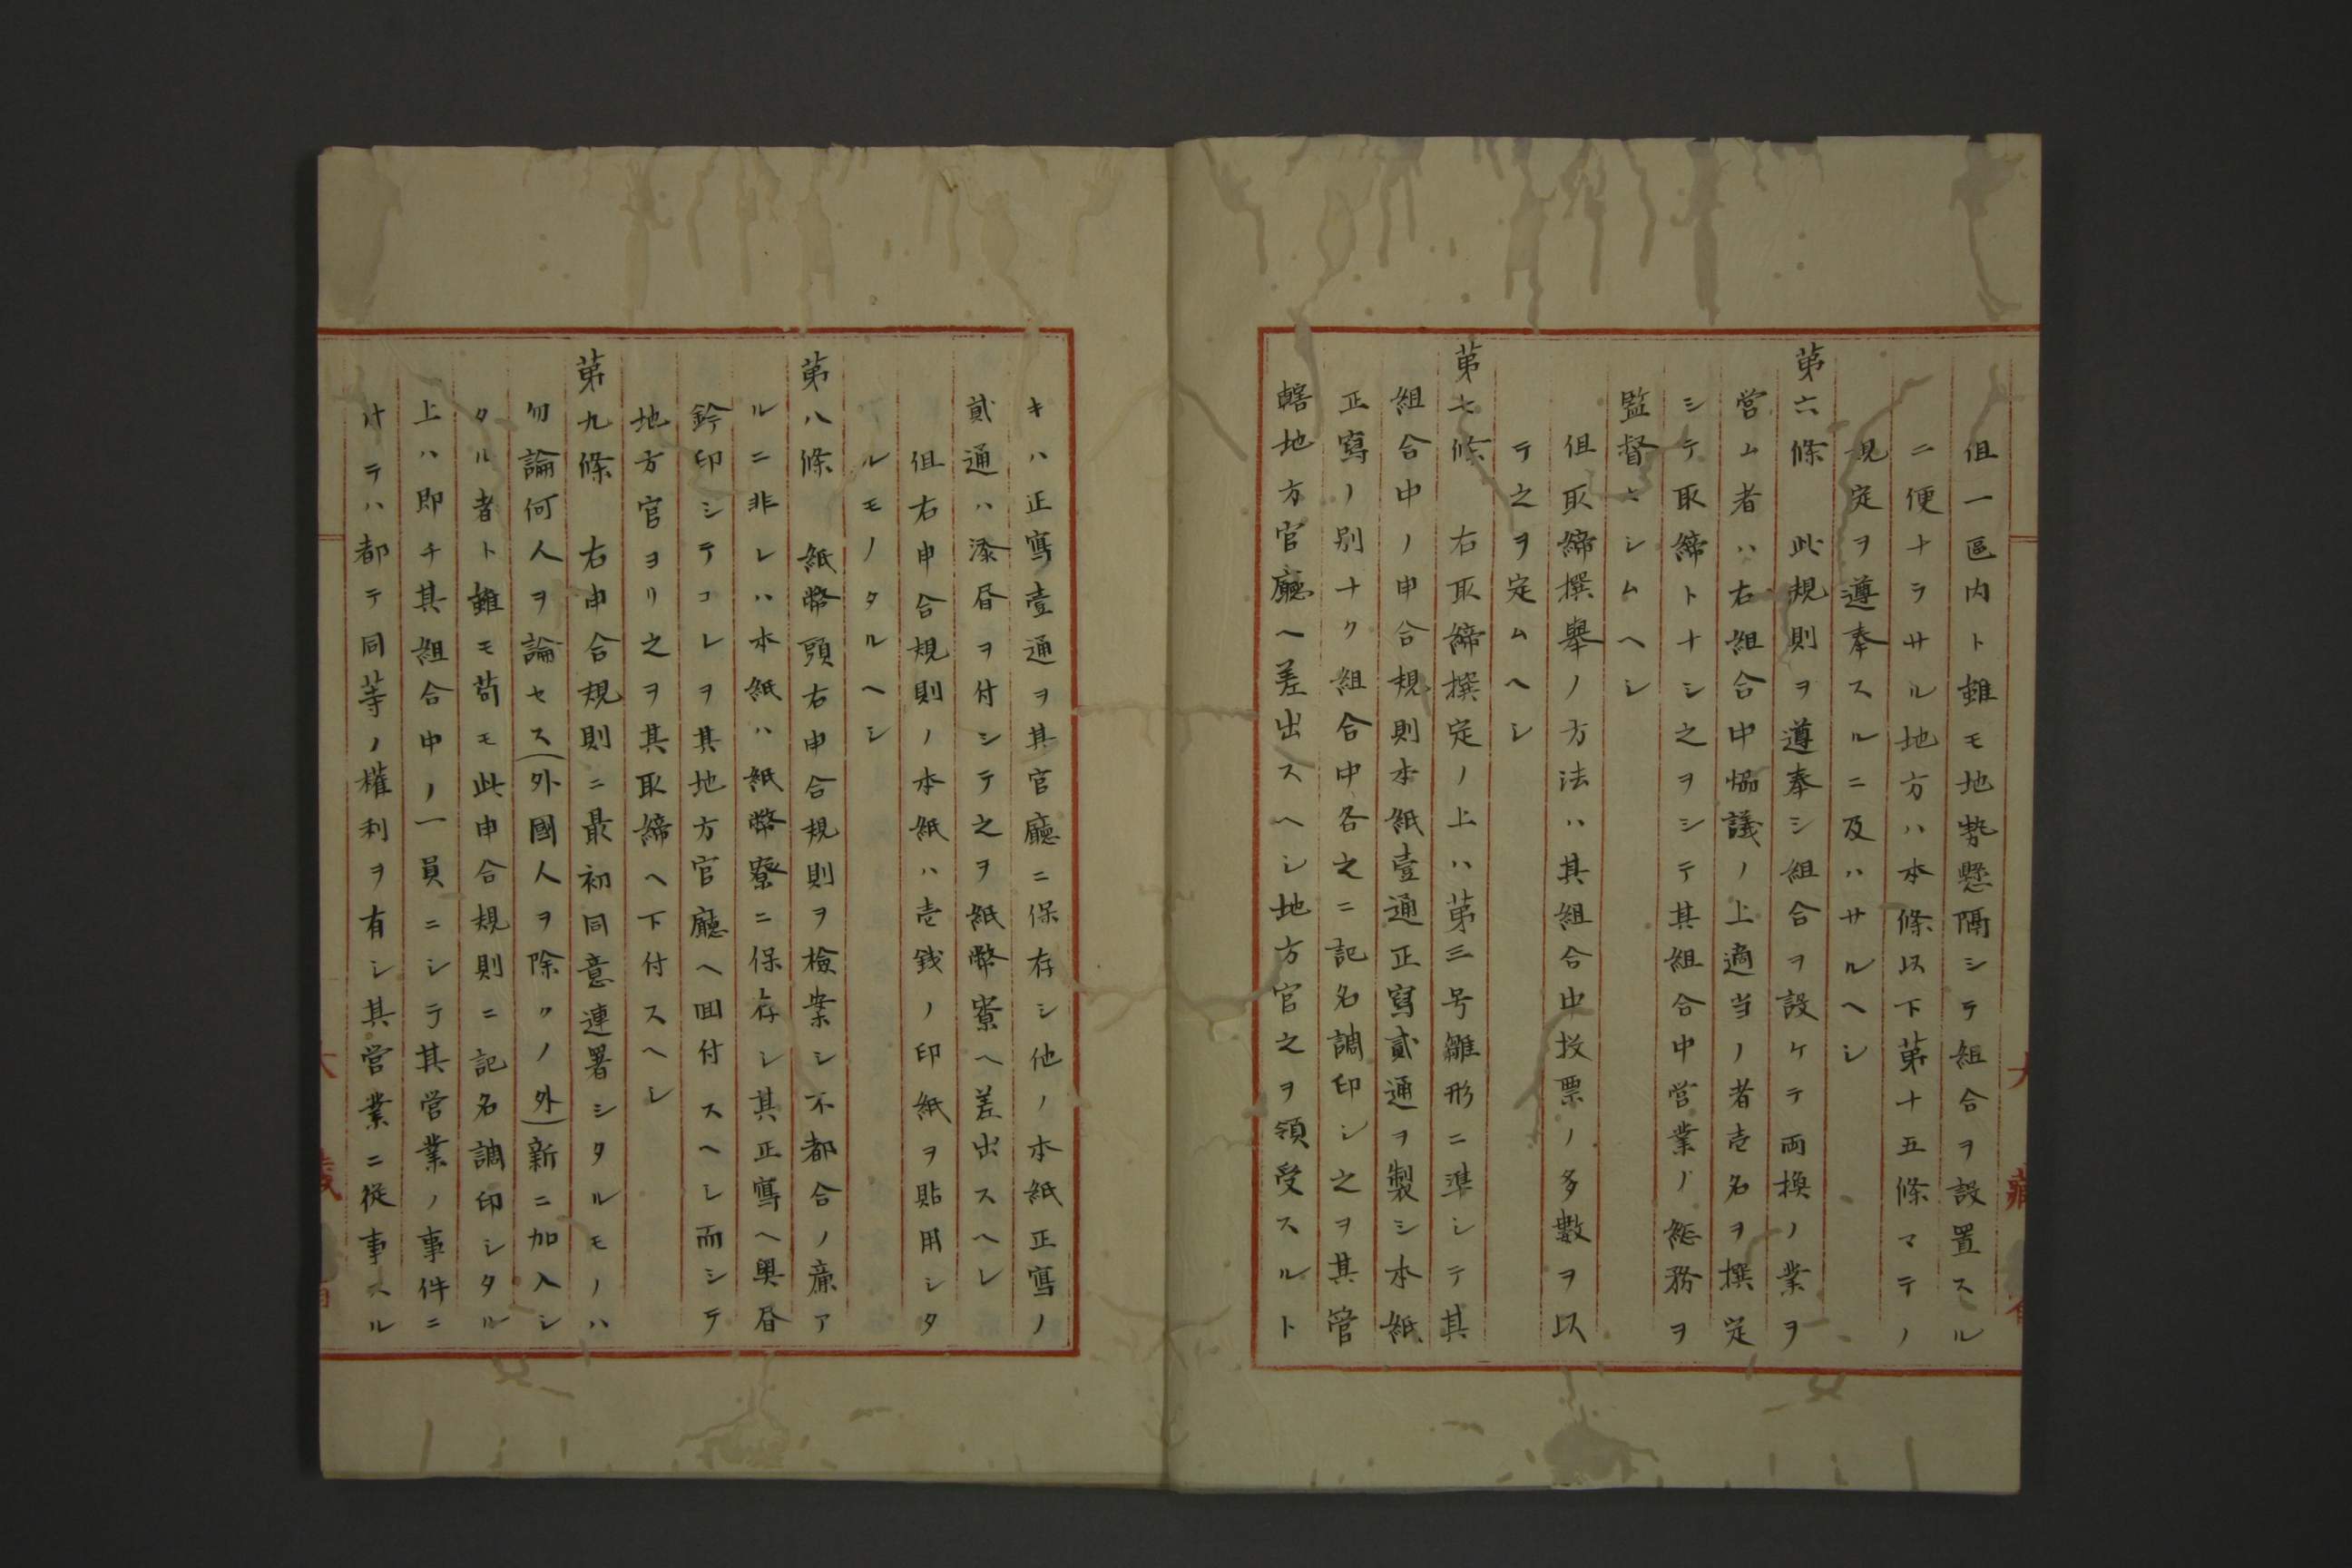 但一區内ト雖モ地勢懸隔シテ組合ヲ設置スル
ニ便ナラサル地方ハ本條以下第十五條マテノ
規定ヲ遵奉スルニ及ハサルヘシ
第六條　此規則ヲ遵奉シ組合ヲ設ケテ両換ノ業ヲ
営ム者ハ右組合中恊議ノ上適当ノ者壱名ヲ撰定
シテ取締トナシ之ヲシテ其組合中営業ノ総務ヲ
監督セシムヘシ
但取締撰擧ノ方法ハ其組合中投票ノ多數ヲ以
テ之ヲ定ムヘシ
第七條　右取締撰定ノ上ハ第三号雛形ニ準シテ其
組合中ノ申合規則本紙壹通正寫貳通ヲ製シ本紙
正寫ノ別ナク組合中各之ニ記名調印シ之ヲ其管
轄地方官廳ヘ差出スヘシ地方官之ヲ領受スルト
キハ正寫壹通ヲ其官廳ニ保存シ他ノ本紙正寫ノ
貳通ハ添書ヲ付シテ之ヲ紙幣寮ヘ差出スヘシ
但右申合規則ノ本紙ハ壱銭ノ印紙ヲ貼用シタ
ルモノタルヘシ
第八條　紙幣頭右申合規則ヲ檢案シ不都合ノ廉ア
ルニ非レハ本紙ハ紙幣寮ニ保存シ其正寫ヘ奥書
鈐印シテコレヲ其地方官廳ヘ回付スヘシ而シテ
地方官ヨリ之ヲ其取締ヘ下付スヘシ
第九條　右申合規則ニ最初同意連署シタルモノハ
勿論何人ヲ論セス（外國人ヲ除クノ外）新ニ加入シ
タル者ト雖モ苟モ此申合規則ニ記名調印シタル
上ハ即チ其組合中ノ一員ニシテ其営業ノ事件ニ
付テハ都テ同等ノ權利ヲ有シ其営業ニ從事スル